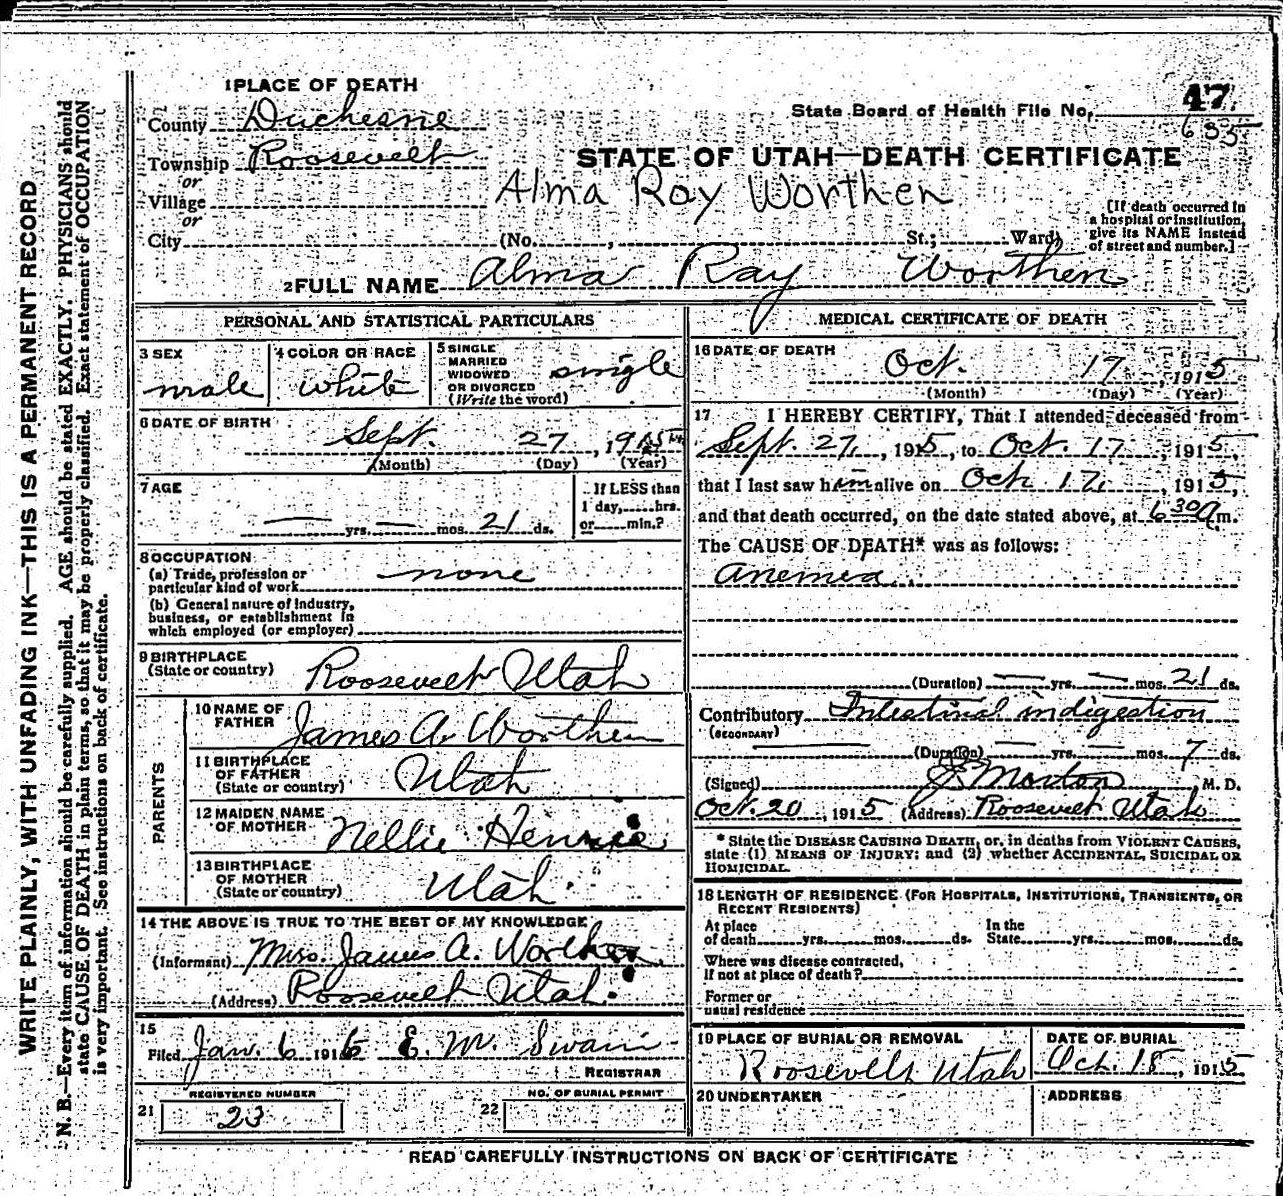 WRITE PLAINLY, WITH UNFADING INK—THIS IS A PERMANENT RECORD
N. B.—Every item of information should be carefully supplied. AGE should be stated EXACTLY. PHYSICIANS should
state CAUSE OF DEATH in plain terms, so that it may be properly classified. Exact statement of OCCUPATION
is very important. See instructions on back of certificate.
1 PLACE OF DEATH
County Duchesne
Township Roosevelt
or
Village
or
City (No. , St.; Ward)
State Board of Health File No. 47
635
STATE OF UTAH—DEATH CERTIFICATE
Alma Ray Worthen
[If death occurred in
a hospital or institution,
give its NAME instead
of street and number.]
2 FULL NAME Alma Ray Worthen
PERSONAL AND STATISTICAL PARTICULARS
3 SEX
male
4 COLOR OR RACE
white
5 SINGLE
MARRIED
WIDOWED
OR DIVORCED
(Write the word)
single
6 DATE OF BIRTH
Sept. 27, 1915
(Month) (Day) (Year)
7 AGE
— yrs. — mos. 21 ds.
If LESS than
1 day, hrs.
or min.?
8 OCCUPATION
(a) Trade, profession or
particular kind of work none
(b) General nature of industry,
business, or establishment in
which employed (or employer)
9 BIRTHPLACE
(State or country) Roosevelt Utah
PARENTS
10 NAME OF
FATHER James A. Worthen
11 BIRTHPLACE
OF FATHER
(State or country) Utah
12 MAIDEN NAME
OF MOTHER Nellie Henrie
13 BIRTHPLACE
OF MOTHER
(State or country) Utah.
14 THE ABOVE IS TRUE TO THE BEST OF MY KNOWLEDGE
(Informant) Mrs. James A. Worthen
(Address) Roosevelt Utah.
15
Filed Jan. 6 1916 E. M. Swain
REGISTRAR
21 REGISTERED NUMBER
23
22 NO. OF BURIAL PERMIT
MEDICAL CERTIFICATE OF DEATH
16 DATE OF DEATH
Oct. 17, 1915
(Month) (Day) (Year)
17 I HEREBY CERTIFY, That I attended deceased from
Sept. 27, 1915, to Oct. 17, 1915,
that I last saw him alive on Oct. 17, 1915,
and that death occurred, on the date stated above, at 6 30 a m.
The CAUSE OF DEATH* was as follows:
Anemia.
(Duration) — yrs. — mos. 21 ds.
Contributory Intestinal indigestion
(SECONDARY)
(Duration) — yrs. — mos. 7 ds.
(Signed) Morton M. D.
Oct. 20, 1915 (Address) Roosevelt Utah
* State the DISEASE CAUSING DEATH, or, in deaths from VIOLENT CAUSES,
state (1) MEANS OF INJURY; and (2) whether ACCIDENTAL, SUICIDAL OR
HOMICIDAL.
18 LENGTH OF RESIDENCE (FOR HOSPITALS, INSTITUTIONS, TRANSIENTS, OR
RECENT RESIDENTS)
At place In the
of death yrs. mos. ds. State yrs. mos. ds.
Where was disease contracted,
if not at place of death?
Former or
usual residence
19 PLACE OF BURIAL OR REMOVAL
Roosevelt Utah
DATE OF BURIAL
Oct. 18, 1915
20 UNDERTAKER
ADDRESS
READ CAREFULLY INSTRUCTIONS ON BACK OF CERTIFICATE